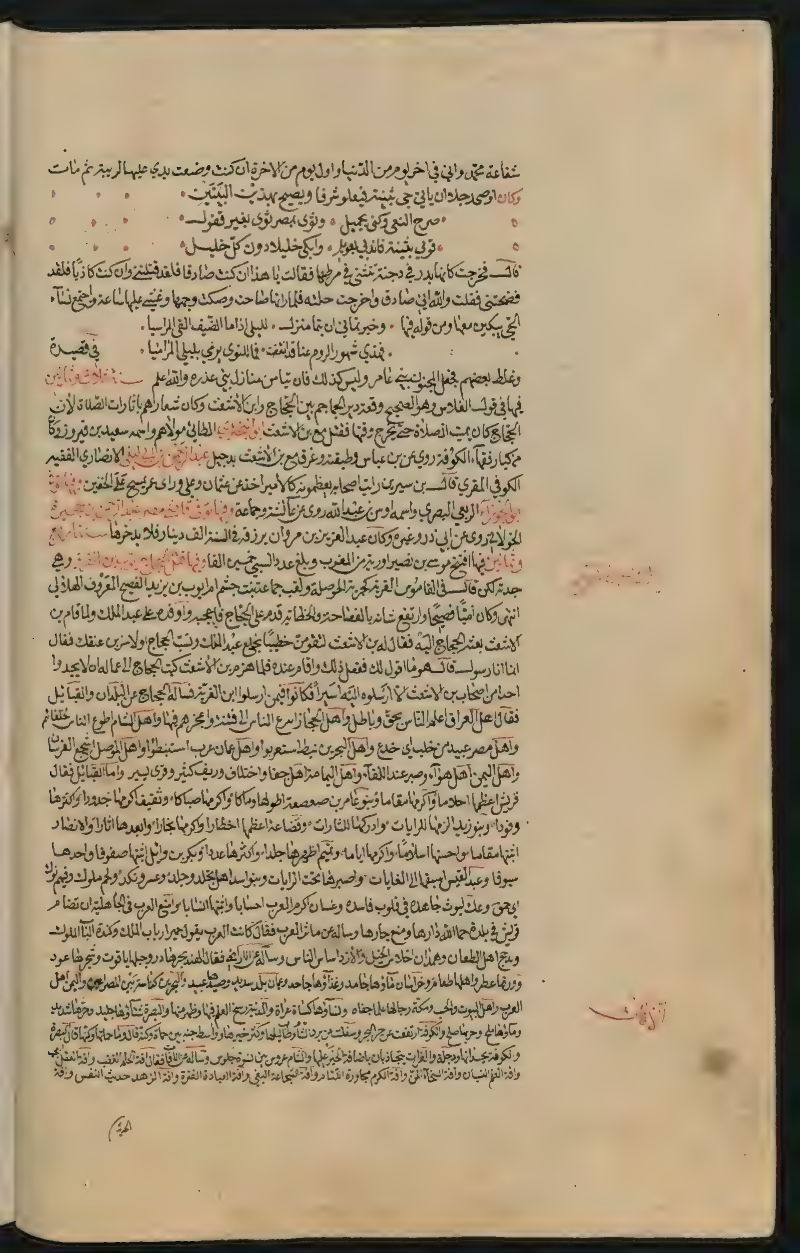 شفاعة محمد واني في اخر يوم من الدنيا واول يوم من الاخرة ان كنت وضعت يدي عليها لريبة ثم مات
وكان اوصى رجلا ان ياتي حي بثينة فيعلو شرفا ويصيح بهذين البيتين
صرح النعي وكنى بجميل وثوى بمصر ثوى بغير قفول
قومي بثينة فاندبي بعويل وابكي خليلا دون كل خليل
قالت فخرجت كانها بدر في دجنة تتثنى في مرطها فقالت يا هذا ان كنت صادقا فلقد قتلتني وان كنت كاذبا فلقد
فضحتني فقلت والله اني صادق واخرجت حلته فلما راتها صاحت وصكت وجهها وغشي عليها ساعة واجتمع نساء
الحي يبكين معها ومن قوله فيها وخبرتماني ان تيما منزل لليلى اذا ما الصيف القى المراسيا
فهذي شهور الروم عنا قد انقضت فما للنوى يرمي بليلى المراميا في قصيدة
وغلط بعضهم فجعل المجنون بني عامر وليس كذلك فان تياس منازل لبني عذره والله اعلم سنة ثلاث وثمانين
فيها في قول الفلاس وهو الصحيح وقعة دير الجماجم بين الحجاج وابن الاشعث وكان شعارهم يا ثارات الصلاة لان
الحجاج كان يميت الصلاة حتى يخرج وقتها فقتل مع بن الاشعث ابو البختري الطائي مولاهم واسمه سعيد بن فيروز وكان
من كبار فقهاء الكوفة روى عن بن عباس وطبقته وغرق مع بن الاشعث بدجيل عبد الرحمن بن ابي ليلى الانصاري الفقيه
الكوفي المقري قال بن سيرين رايت اصحابه يعظمونه كالامير اخذ عن عثمان وعلي وراى عمر يمسح على الخفين وفيها قتل
ابو الجوزاء الربعي البصري واسمه اوس بن عبد الله روى عن عائشة وجماعة وفيها توفي قاضي مصر عبد الرحمن بن حجيرة
الخولاني روى عن ابي ذر وغيره وكان عبد العزيز بن مروان يرزقه في السنة الف دينار فلا يدخرها سنة اربع
وثمانين فيها افتتح موسى بن نصير اوربة من المغرب وبلغ عدد السبي خمسين الفا وفيها قتل الحجاج ايوب بن القرية وهي
جدته لكن قال في القاموس القرية كجرية الحوصلة ولقب جماعة بنت جشم ام ايوب بن يزيد الفصيح المعروف الهلالي
انتهى وكان اميا فصيحا وارتفع شانه بالفصاحة والخطابة قدم على الحجاج فاعجبه واوفده على عبد الملك ولما قام بن
الاشعث بعثه الحجاج اليه فقال له بن الاشعث لتقومن خطيبا بخلع عبد الملك وتسب الحجاج او لاضربن عنقك فقال
انما انا رسول قال هو ما اقول لك ففعل ذلك واقام عنده فلما هزم بن الاشعث كتب الحجاج الى عماله ان لا يجدوا
احدا من اصحاب بن الاشعث الا ارسلوه اليه اسيرا فكانوا فيمن ارسلوا ابن القرية فساله الحجاج عن البلدان والقبائل
فقال اهل العراق اعلم الناس بحق وباطل واهل الحجاز اسرع الناس الى فتنة واعجزهم فيها واهل الشام اطوع الناس لخلفائهم
واهل مصر عبيد من خلب اي خدع واهل البحرين نبط استعربوا واهل عمان عرب استنبطوا واهل الموصل اشجع الفرسان
واهل اليمن اهل هواء وصبر عند اللقاء واهل اليمامة اهل جفا واختلاف وريف كثير وقرى يسير واما القبائل فقال
قريش اعظمها احلاما واكرمها مقاما وبنو عامر بن صعصعة اطولها رماحا واكرمها صباحا وثقيف اكرمها جدودا واكثرها
وفودا وبنو زيد الزمها للرايات وادركها للثارات وقضاعة اعظمها اخطارا واكرمها نجارا وابعدها اثارا والانصار
اثبتها مقاما واحسنها اسلاما واكرمها اياما وتميم اظهرها جلدا واكثرها عددا وبكر بن وايل اثبتها صفوفا واحدها
سيوفا وعبد القيس اسبقها الى الغايات واصبرها تحت الرايات وبنو اسد اهل تجلد وجلد وعسر ونكد ولخم ملوك وفيهم نوك
اي حمق وعك ليوث جاهدة في قلوب فاسدة وغسان اكرم العرب احسابا واثبتها انسابا وامنع العرب في الجاهلية ان تضام
قريش في بلدة حما الله دارها ومنع جارها وساله عن ماثر العرب فقال كانت العرب يقول حمير ارباب الملك وكندة لباب الملوك
ومذحج اهل الطعان وهمدان احلاس الخيل والازد اساس الناس وساله عن الاراضي فقال الهند بحرها در وجبلها ياقوت وشجرها عود
وورقها عطر واهلها طغام وخراسان ماؤها جامد وعدوها جاحد وعمان بلد شديد وصيدها عبيد والبحرين كناسة بين المصرين واليمن اصل
العرب واهل البيوت والحسب ومكة رجالها علما جفاه ونساؤها كساة عراة والمدينة رسخ العلم فيها وظهر منها والبصرة شتاؤها جليد وحرها شديد
وماؤها ملح وحربها صلح والكوفة ارتفعت عن حر البحر وسفلت عن برد الشام فطاب ليلها وكثر خيرها وواسط جنة بين حماة وكنة قال وما حماتها وكنتها قال البصرة
والكوفة يحسدانها ودجلة والفرات يتجاذبان بافاضة الخير عليها والشام عروس بين نسوة جلوس وساله عن الافات فقال افة الحلم الغضب وافة العقل العجب
وافة العلم النسيان وافة السخاء المن وافة الكرم مجاورة اللئام وافة الشجاعة البغي وافة العبادة الفترة وافة الزهد حديث النفس وافة